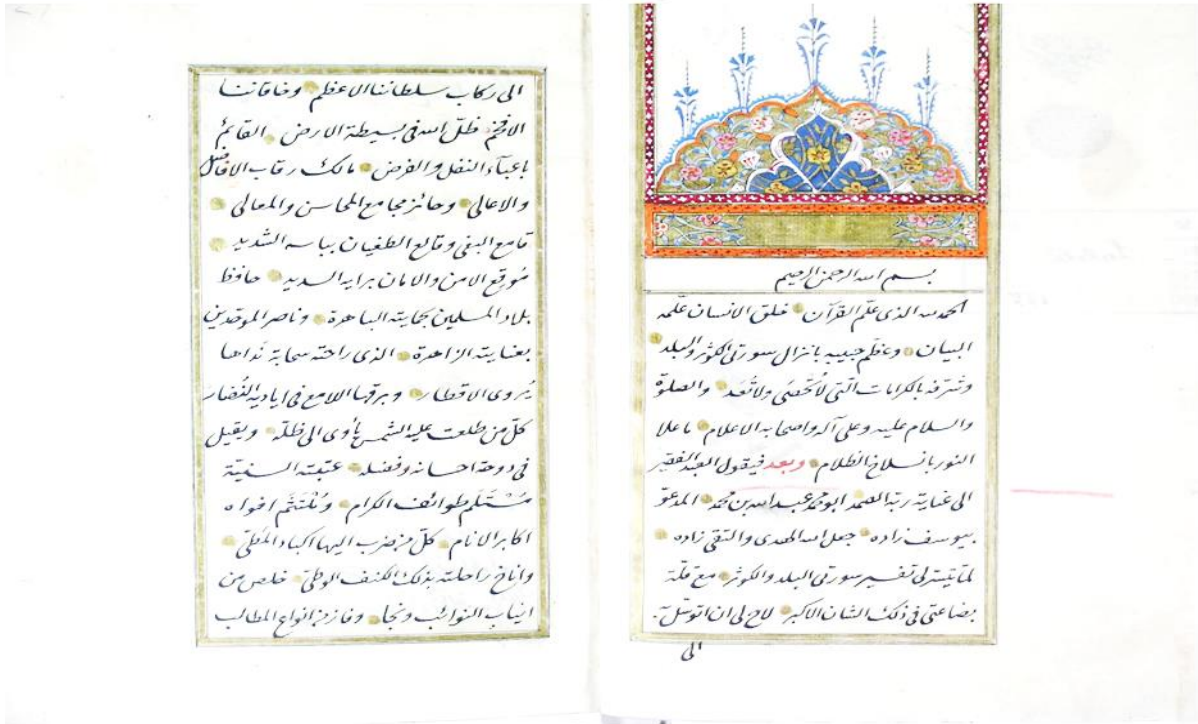 بسم الله الرحمن الرحيم
الحمد لله الذى علم القرآن خلق الانسان علّمه
البيان وعظّم حبيبه بانزال سورتى الكوثر والبلد
وشرّفه بالكرامات الّتى لاتُحْصَى ولاتُعَد والصلوة
والسلام عليه وعلى آله واصحابه الاعلام ماعلا
النور بانسلاخ الظلام وبعد فيقول العبد الفقير
الى عناية ربّه الصمد ابو محمد عبد الله بن محمد المدعوّ
بيوسف زاده جعل الله الهدى والتقى زاده
لمّا تيسّر لى تفسير سورتى البلد والكوثر مع قلّة
بضاعتى فى ذلك الشان الاكبر لاح لى ان اتوسّل به
الى
الى ركاب سلطاننا الاعظم وخاقاننا
الافخم ظلّ الله فى بسيطة الارض القائم
باعبآء النفل والفرض مالك رقاب الافاضل
والاعالى وحائز مجامع المحاسن والمعالى
قامع البغى وقالع الطغيان بباسه الشديد
مُوقع الامن والامان برايه السديد حافظ
بلاد المسلمين بحمايته الباهرة وناصر الموحّدين
بعنايته الزاهرة الذى راحته سحابة نداها
يُروى الاقطار وبرقها اللامع فى اياديه النُضار
كلّ من طلعت عليه الشمس يأوى الى ظلّه ويقيل
فى دوحة احسانه وفضله عتبته السنيّة
مُسْتَلَم طوائف الكرام ومُلْتَثَم افواه
اكابر الانام كلّ من ضرب اليها اكباد المَطىّ
واناخ راحلته بذلك الكنف الوطىّ خلص من
انياب النوائب ونجا وفاز من انواع المطالب